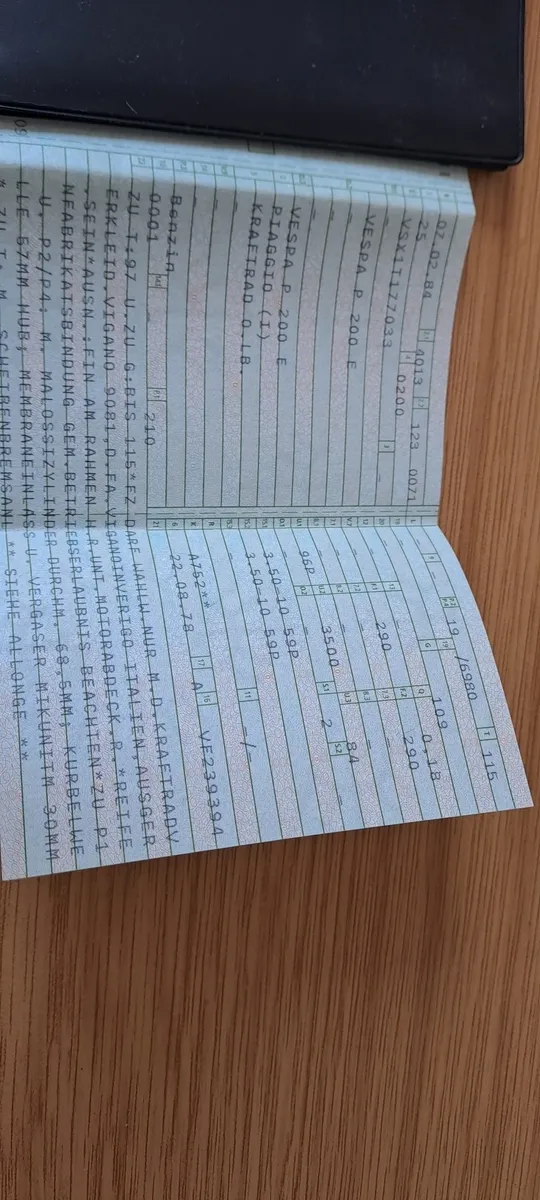 07.02.84 4013 123 0071
25 0200
VSX1T177033 -
-
VESPA P 200 E
-
-
VESPA P 200 E
PIAGGIO (I)
KRAFTRAD O.LB.
-
-
Benzin
0001 - 210
- 19 /6980 115
- 109 0,18
- 290 290
- - -
- - 84
96P 3500 2 -
3.50-10 59P
3.50-10 59P
- -/-
A752**
22.08.78 A VE239394
ZU T:97 U.ZU G:BIS 115*FZ.DARF WAHLW.NUR M.D.KRAFTRADV
ERKLEID.VIGANO 9081,D.FA.VIGANOINVERIGO ITALIEN,AUSGER
.SEIN*AUSN.:FIN AM RAHMEN H.R.UNT.MOTORABDECK.R.*REIFE
NFABRIKATSBINDUNG GEM.BETRIEBSERLAUBNIS BEACHTEN*ZU P1
U. P2/P4: M. MALOSSIZYLINDER DURCHM. 68,5MM, KURBELWE
LLE 57MM HUB, MEMBRANEINLASS U. VERGASER MIKUNITM 30MM
* ZU T. M. SCHEIBENBREMSANL ** SIEHE ALLONGE **